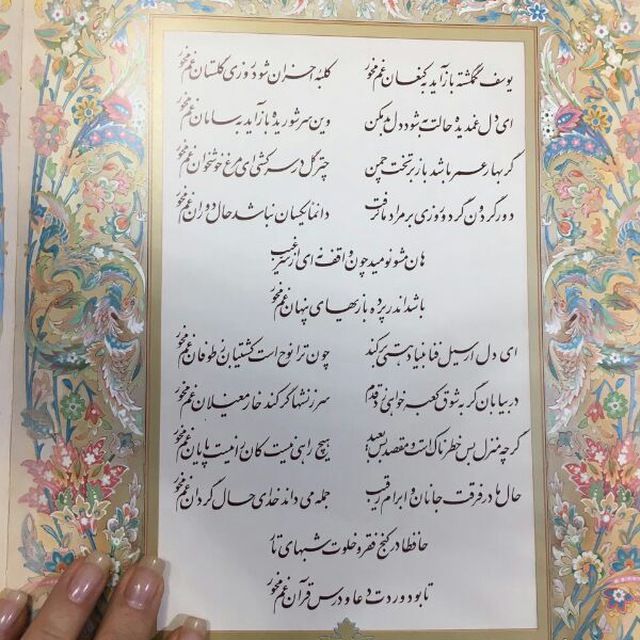 یوسف گمگشته بازآید به کنعان غم مخور کلبهٔ احزان شود روزی گلستان غم مخور
ای دل غمدیده حالت به شود دل بد مکن وین سر شوریده بازآید به سامان غم مخور
گر بهار عمر باشد باز بر تخت چمن چتر گل در سر کشی ای مرغ خوشخوان غم مخور
دور گردون گر دو روزی بر مراد ما نرفت دائما یکسان نباشد حال دوران غم مخور
هان مشو نومید چون واقف نه‌ای از سر غیب
باشد اندر پرده بازیهای پنهان غم مخور
ای دل ار سیل فنا بنیاد هستی برکند چون ترا نوح است کشتیبان ز طوفان غم مخور
در بیابان گر به شوق کعبه خواهی زد قدم سرزنشها گر کند خار مغیلان غم مخور
گرچه منزل بس خطرناک است و مقصد بس بعید هیچ راهی نیست کان را نیست پایان غم مخور
حال ما در فرقت جانان و ابرام رقیب جمله می داند خدای حال گردان غم مخور
حافظا در کنج فقر و خلوت شبهای تار
تا بود وردت دعا و درس قرآن غم مخور